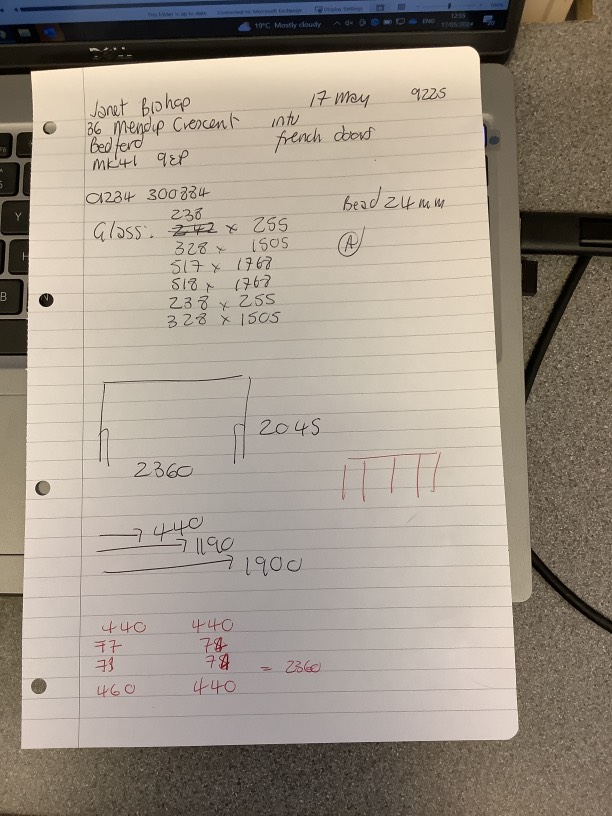 19°C Mostly cloudy
ENG
12:55
17/05/2024
DELL
Janet Bishop 17 May 9225
36 Mendip Crescent into
Bedford french doors
MK41 9EP
01234 300884
238 Bead 24mm
Glass: 242 x 255
328 x 1505 A
517 x 1768
518 x 1768
238 x 255
328 x 1505
2045
2360
440
1190
1900
440 440
77
73
= 2360
460 440